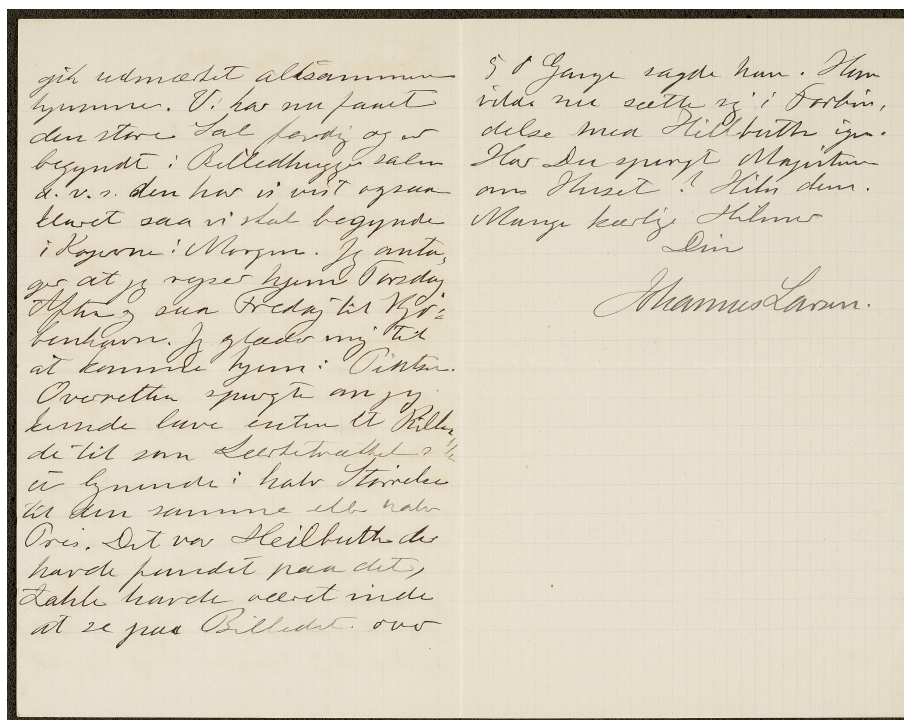 gik udmærket altsammen
hjemme. Vi har nu faaet
den store Sal færdig og er
begyndt i Billedhuggersalen
d.v.s. den har vi vist ogsaa
klaret saa vi skal begynde
i Kojerne i Morgen. Jeg anta-
ger at jeg rejser hjem Torsdag
Aften og saa Fredag til Kjø-
benhavn. Jeg glæder mig til
at komme hjem i Pintsen.
Overretten spurgte om jeg
kunde lave enten et Bille-
de til som
et lignende i halv Størrelse
til den samme eller halv
Pris. Det var Heilbuth der
havde fundet paa det,
Zahle havde været inde
at se paa Billedet over
5 8 Gange sagde han. Han
vilde nu sætte sig i Forbin-
delse med Heilbuth igen.
Har Du spurgt Magisteren
om Huset? Hils dem.
Mange kærlige Hilsner
Din
Johannes Larsen.